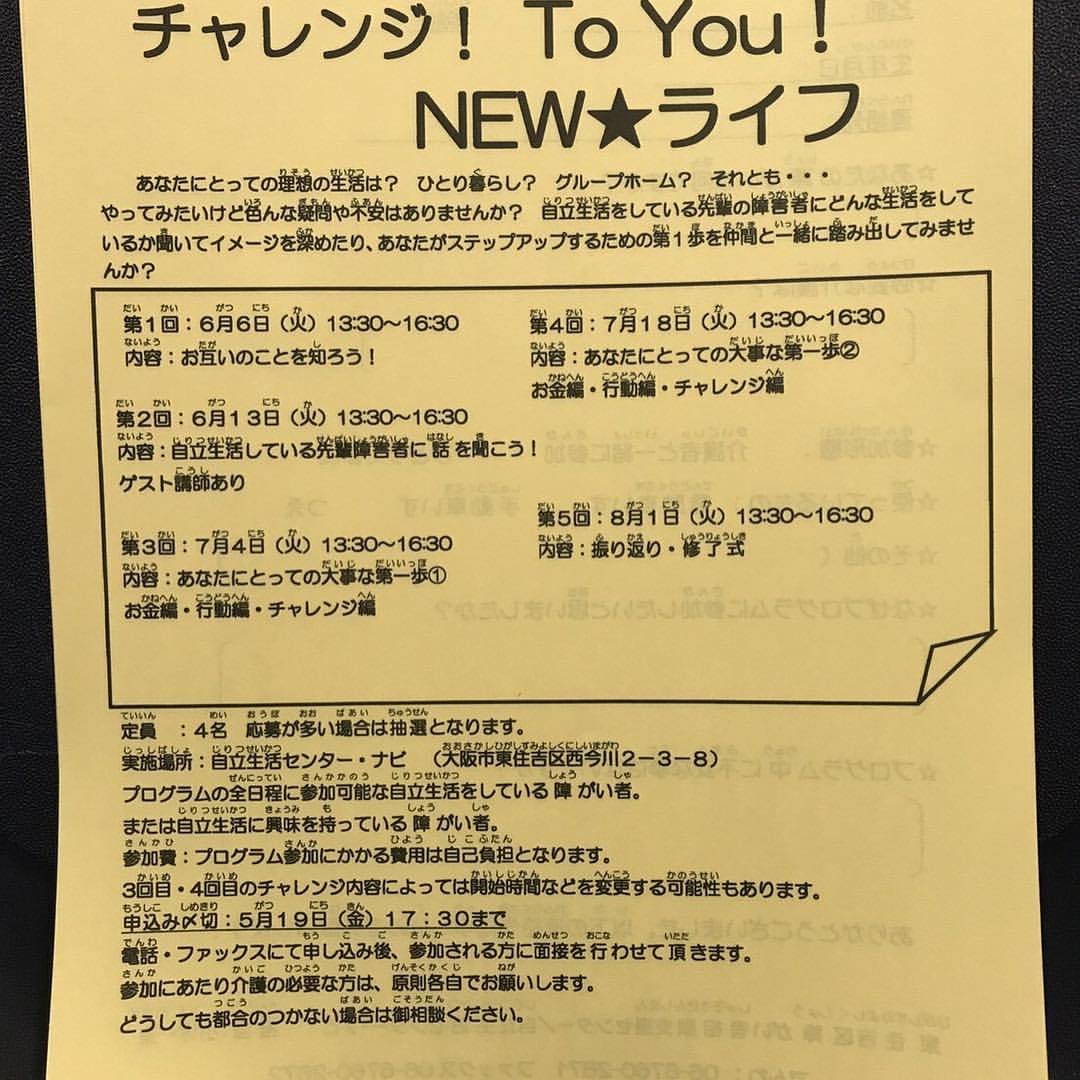 チャレンジ! To You!
NEW★ライフ
あなたにとっての理想の生活は? ひとり暮らし? グループホーム? それとも・・・
やってみたいけど色んな疑問や不安はありませんか? 自立生活をしている先輩の障害者にどんな生活をして
いるか聞いてイメージを深めたり、あなたがステップアップするための第1歩を仲間と一緒に踏み出してみませ
んか?
第1回:6月6日(火)13:30~16:30
内容:お互いのことを知ろう!
第2回:6月13日(火)13:30~16:30
内容:自立生活している先輩障害者に話を聞こう!
ゲスト講師あり
第3回:7月4日(火)13:30~16:30
内容:あなたにとっての大事な第一歩①
お金編・行動編・チャレンジ編
第4回:7月18日(火)13:30~16:30
内容:あなたにとっての大事な第一歩②
お金編・行動編・チャレンジ編
第5回:8月1日(火)13:30~16:30
内容:振り返り・修了式
定員 :4名 応募が多い場合は抽選となります。
実施場所:自立生活センター・ナビ (大阪市東住吉区西今川2-3-8)
プログラムの全日程に参加可能な自立生活をしている障がい者。
または自立生活に興味を持っている障がい者。
参加費:プログラム参加にかかる費用は自己負担となります。
3回目・4回目のチャレンジ内容によっては開始時間などを変更する可能性もあります。
申込み〆切:5月19日(金)17:30まで
電話・ファックスにて申し込み後、参加される方に面接を行わせて頂きます。
参加にあたり介護の必要な方は、原則各自でお願いします。
どうしても都合のつかない場合は御相談ください。